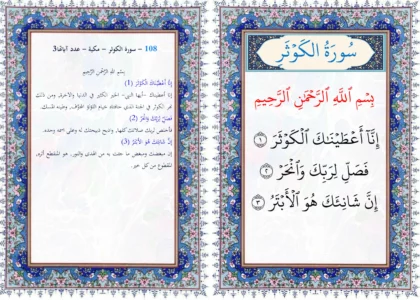 سُورَةُ الكَوْثَر
بِسْمِ اللَّهِ الرَّحْمَٰنِ الرَّحِيمِ
إِنَّآ أَعْطَيْنَٰكَ ٱلْكَوْثَرَ ١
فَصَلِّ لِرَبِّكَ وَٱنْحَرْ ٢
إِنَّ شَانِئَكَ هُوَ ٱلْأَبْتَرُ ٣
108 – سورة الكوثر – مكية – عدد آياتها3
بِسْمِ اللَّهِ الرَّحْمَنِ الرَّحِيمِ
إِنَّا أَعْطَيْنَاكَ الْكَوْثَرَ (1)
إنا أعطيناك -أيها النبي- الخير الكثير في الدنيا والآخرة، ومن ذلك
نهر الكوثر في الجنة الذي حافتاه خيام اللؤلؤ المجوَّف، وطينه المسك.
فَصَلِّ لِرَبِّكَ وَانْحَرْ (2)
فأخلص لربك صلاتك كلها، واذبح ذبيحتك له وعلى اسمه وحده.
إِنَّ شَانِئَكَ هُوَ الأَبْتَرُ (3)
إن مبغضك ومبغض ما جئت به من الهدى والنور، هو المنقطع أثره،
المقطوع من كل خير.